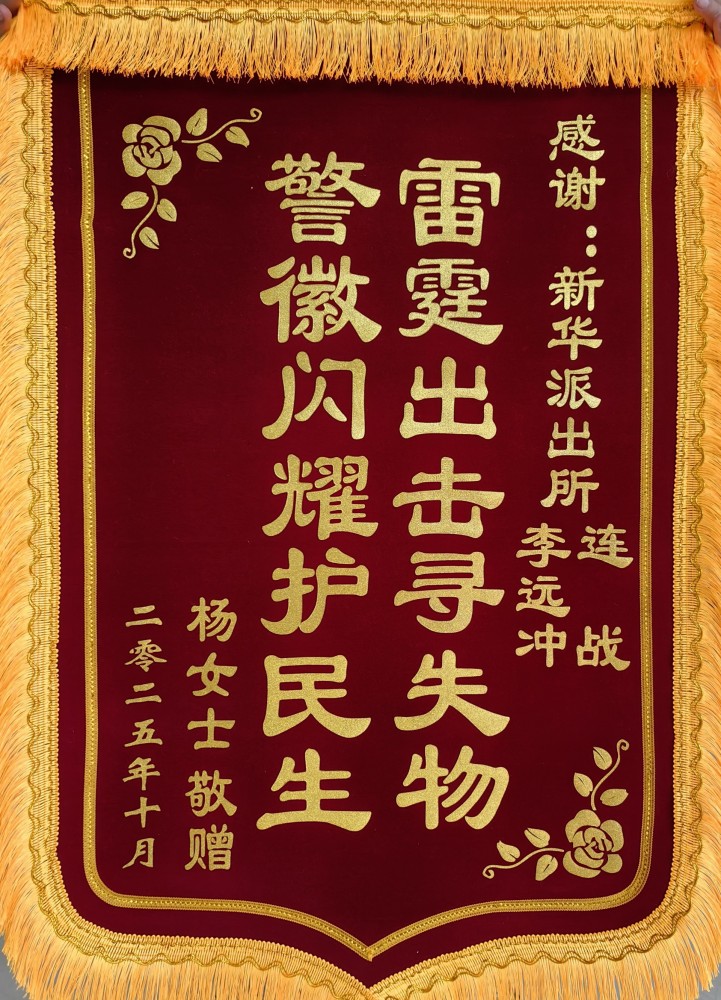 感谢：新华派出所
连战
李远冲
雷霆出击寻失物
警徽闪耀护民生
杨女士敬赠
二零二五年十月